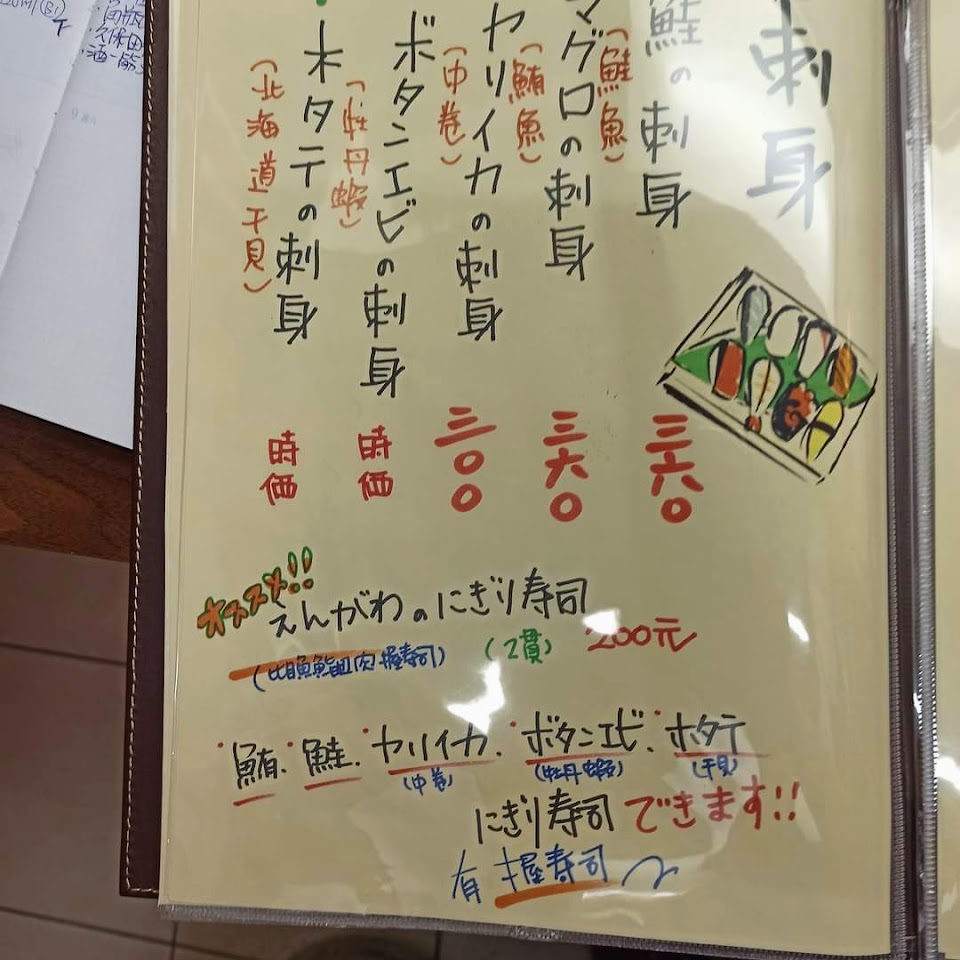 刺身
鮭の刺身
(鮭魚)
三六〇
マグロの刺身
(鮪魚)
三六〇
ヤリイカの刺身
(中卷)
三〇〇
ボタンエビの刺身
(牡丹蝦)
時価
ホタテの刺身
(北海道干貝)
時価
オススメ!!
えんがわのにぎり寿司
(比目魚鰭肌肉握壽司)
(2貫)
200元
鮪・鮭・ヤリイカ・ボタンエビ・ホタテ
(中卷) (牡丹蝦) (干貝)
にぎり寿司できます!!
有握寿司
久保田